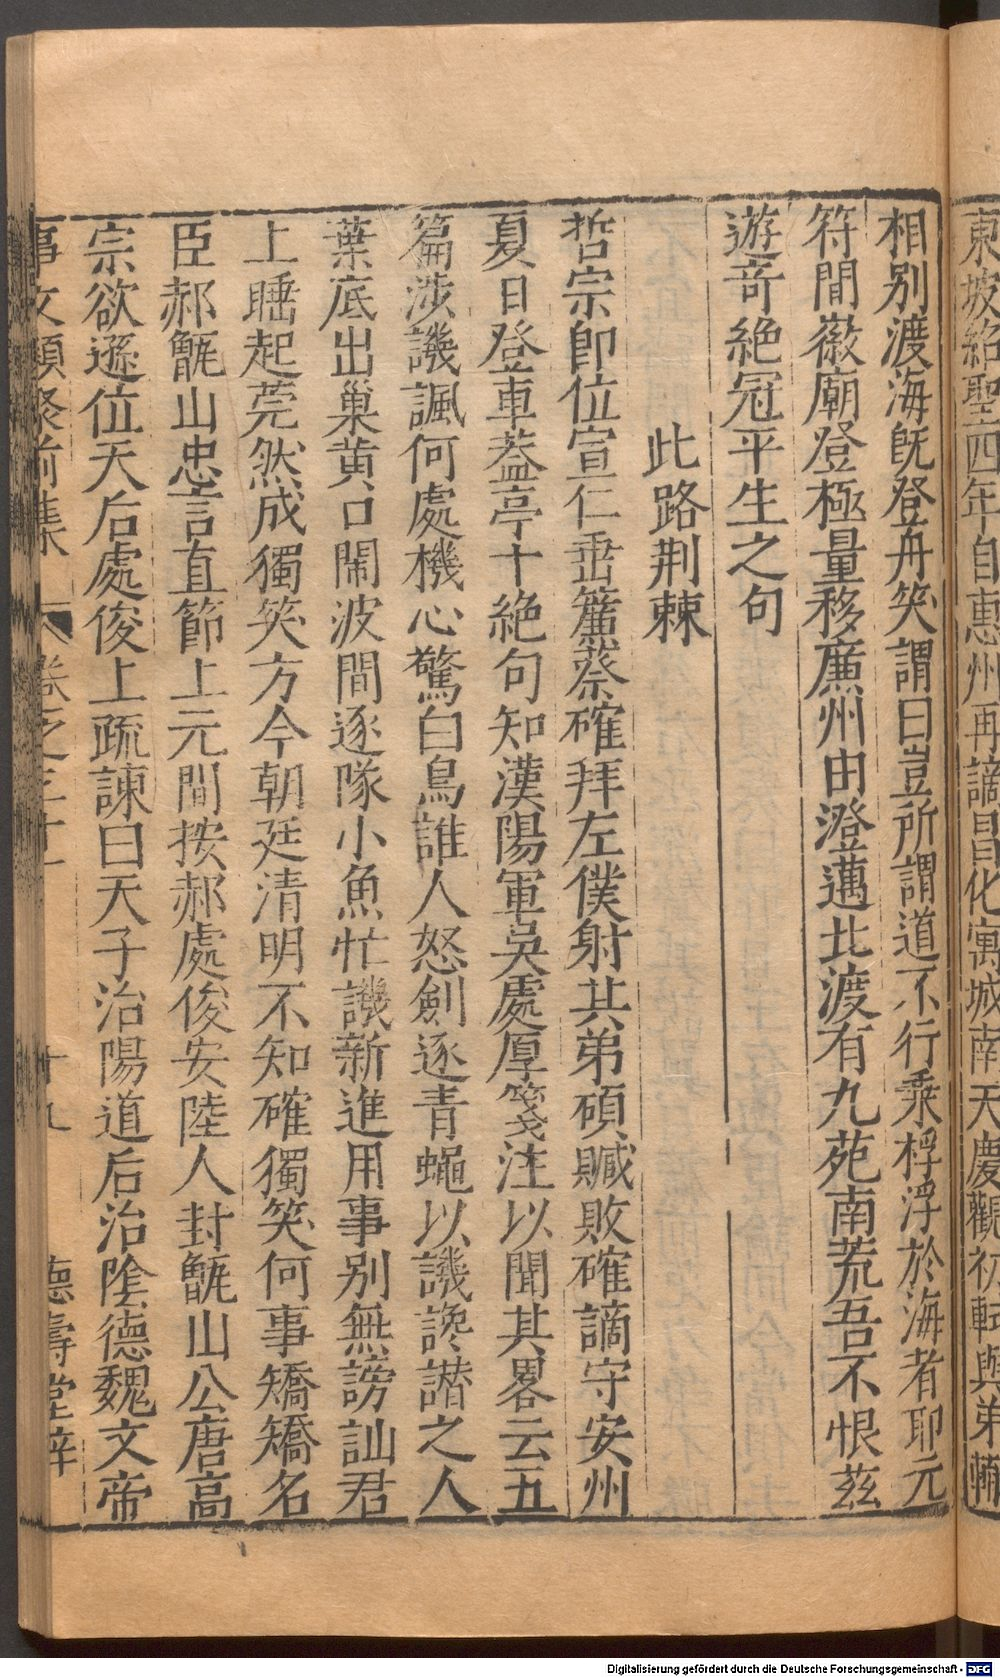 東坡紹聖四年自惠州再謫昌化寓城南天慶觀初轉與弟轍
相別渡海旣登舟笑謂曰豈所謂道不行乘桴浮於海者耶元
符間徽廟登極量移廉州由澄邁北渡有九苑南荒吾不恨茲
遊奇絶冠平生之句
此路荆棘
哲宗卽位宣仁垂簾蔡確拜左僕射其弟碩贓敗確謫守安州
夏日登車蓋亭十絶句知漢陽軍吳處厚箋注以聞其畧云五
篇涉譏諷何處機心驚白鳥誰人怒劍逐青蠅以譏讒譖之人
葉底出巢黄口閙波間逐隊小魚忙譏新進用事別無謗訕君
上睡起莞然成獨笑方今朝廷清明不知確獨笑何事矯矯名
臣郝甑山忠言直節上元間按郝處俊安陸人封甑山公唐高
宗欲遜位天后處俊上疏諫曰天子治陽道后治陰德魏文帝
事文類聚前集 卷之三十一 十九 德壽堂梓
Digitalisierung gefördert durch die Deutsche Forschungsgemeinschaft - DFG